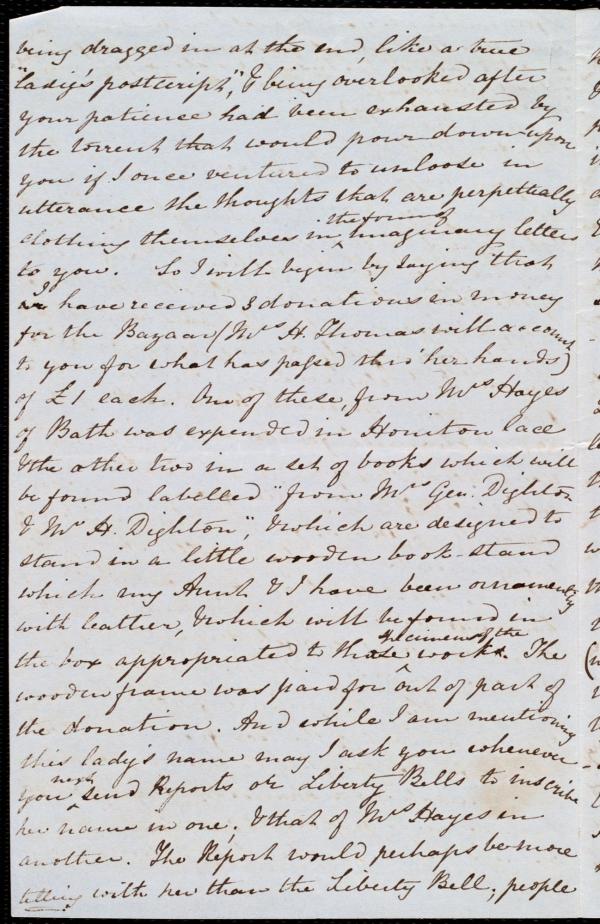 being dragged in at the end, like a true
"lady's postscript," & being overlooked after
your patience had been exhausted by
the torrent that would pour down upon
you if I once ventured to unloose in
utterance the thoughts that are perpetually
clothing themselves in ^ the form of imaginary letters
to you. So I will begin by saying that
I have received 3 donations in money
for the Bazaar (Mrs H. Thomas will account
to you for what has passed thro' her hands)
of £1 each. One of these, from Mrs Hayes
of Bath was expended in Honiton lace
& the other two in a set of books which will
be found labelled "from Mrs Gen. Dighton
& Mrs H. Dighton", & which are designed to
stand in a little wooden book-stand
which my Aunt & I have been ornamenting
with leather, & which will be found in
the box appropriated to those ^ specimens of the works. The
wooden frame was paid for out of part of
the donation. And while I am mentioning
this lady's name may I ask you whenever
you ^ next send Reports or Liberty Bells to inscribe
her name in one; & that of Mrs Hayes in
another. The Report would perhaps be more
telling with her than the Liberty Bell; people